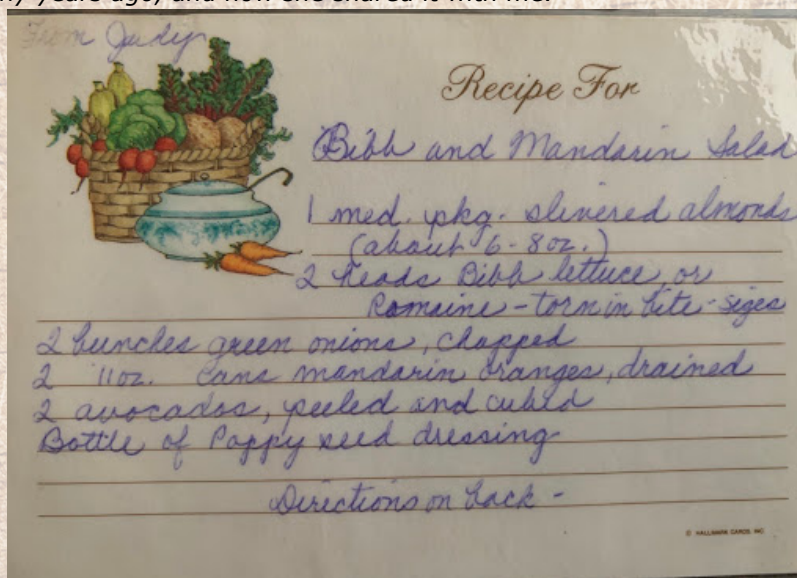 ny years ago, and now she shared it with me.
From Judy
Recipe For
Bibb and Mandarin Salad
1 med. pkg. slivered almonds
(about 6-8 oz.)
2 heads Bibb lettuce or
Romaine - torn in bite-sizes
2 bunches green onions, chopped
2 11oz. cans mandarin oranges, drained
2 avocados, peeled and cubed
Bottle of Poppy seed dressing
Directions on back -
© HALLMARK CARDS, INC.